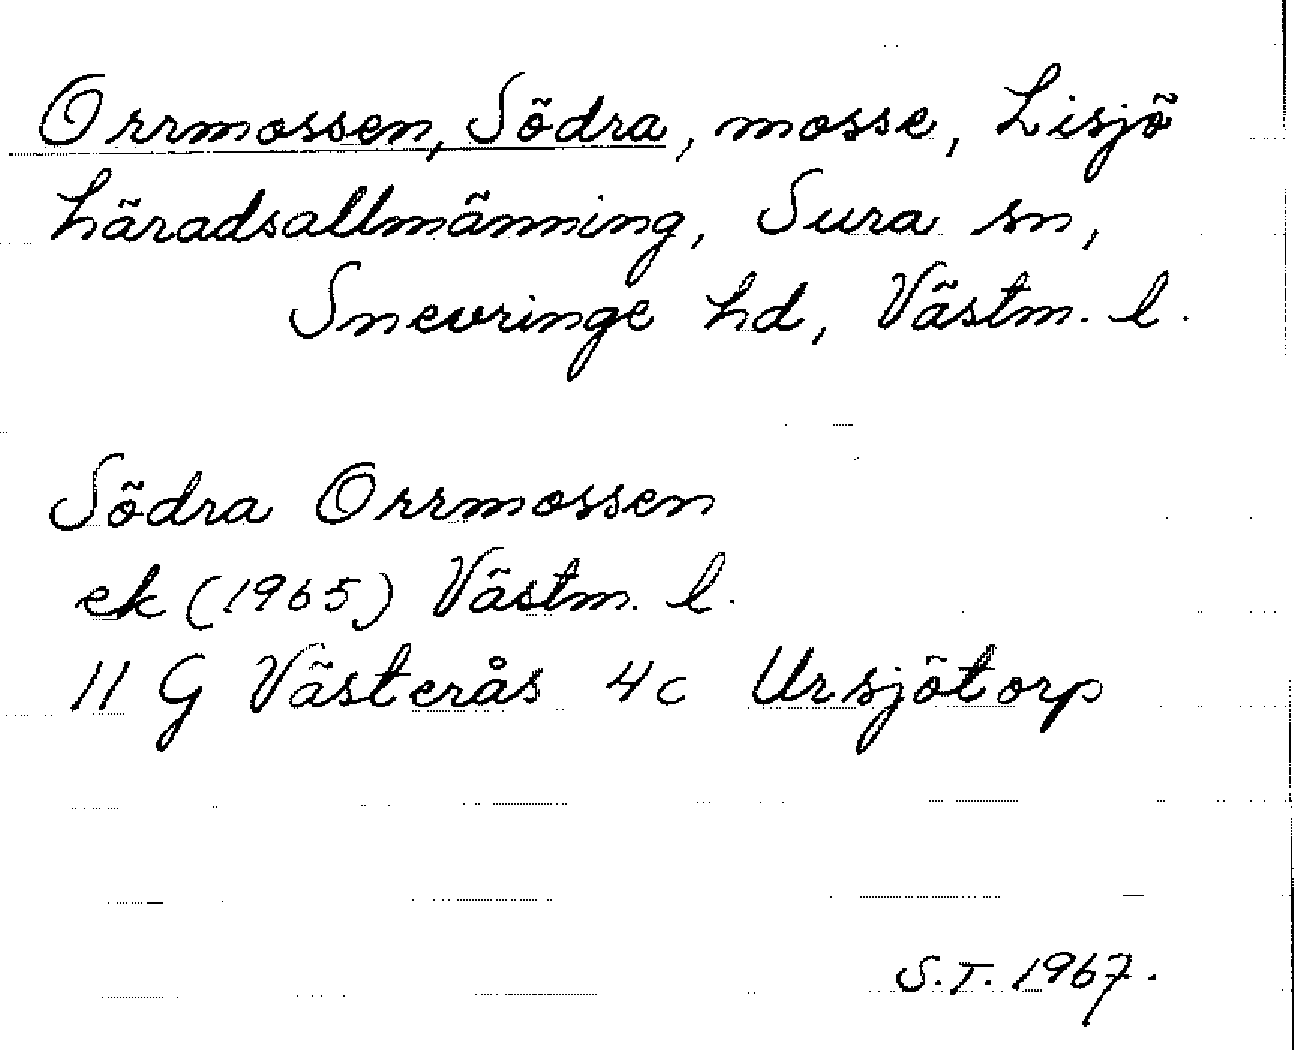 Orrmossen, Södra, mosse, Lisjö
häradsallmänning, Sura sn,
Snevringe hd, Västm. l.
Södra Orrmossen
ek (1965) Västm. l.
11 G Västerås 4c Ursjötorp
S.T. 1967.